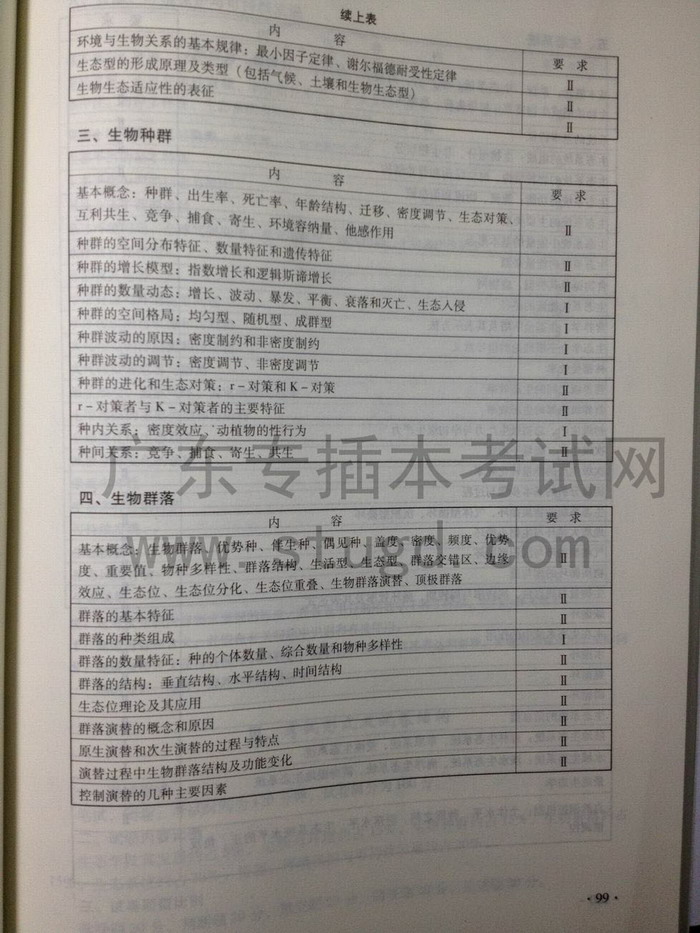 续上表
内 容 要 求
环境与生物关系的基本规律：最小因子定律、谢尔福德耐受性定律 Ⅱ
生态型的形成原理及类型（包括气候、土壤和生物生态型） Ⅱ
生物生态适应性的表征 Ⅱ
三、生物种群
内 容 要 求
基本概念：种群、出生率、死亡率、年龄结构、迁移、密度调节、生态对策、
互利共生、竞争、捕食、寄生、环境容纳量、他感作用 Ⅱ
种群的空间分布特征、数量特征和遗传特征 Ⅱ
种群的增长模型：指数增长和逻辑斯谛增长 Ⅱ
种群的数量动态：增长、波动、暴发、平衡、衰落和灭亡、生态入侵 Ⅰ
种群的空间格局：均匀型、随机型、成群型 Ⅰ
种群波动的原因：密度制约和非密度制约 Ⅰ
种群波动的调节：密度调节、非密度调节 Ⅰ
种群的进化和生态对策：r－对策和K－对策 Ⅱ
r－对策者与K－对策者的主要特征 Ⅱ
种内关系：密度效应、动植物的性行为 Ⅰ
种间关系：竞争、捕食、寄生、共生 Ⅱ
广东专插本考试网
四、生物群落
内 容 要 求
基本概念：生物群落、优势种、伴生种、偶见种、盖度、密度、频度、优势
www.stugd.com
度、重要值、物种多样性、群落结构、生活型、生态型、群落交错区、边缘 Ⅱ
效应、生态位、生态位分化、生态位重叠、生物群落演替、顶极群落
群落的基本特征 Ⅱ
群落的种类组成 Ⅰ
群落的数量特征：种的个体数量、综合数量和物种多样性 Ⅱ
群落的结构：垂直结构、水平结构、时间结构 Ⅱ
生态位理论及其应用 Ⅱ
群落演替的概念和原因 Ⅱ
原生演替和次生演替的过程与特点 Ⅱ
演替过程中生物群落结构及功能变化 Ⅱ
控制演替的几种主要因素
·99·